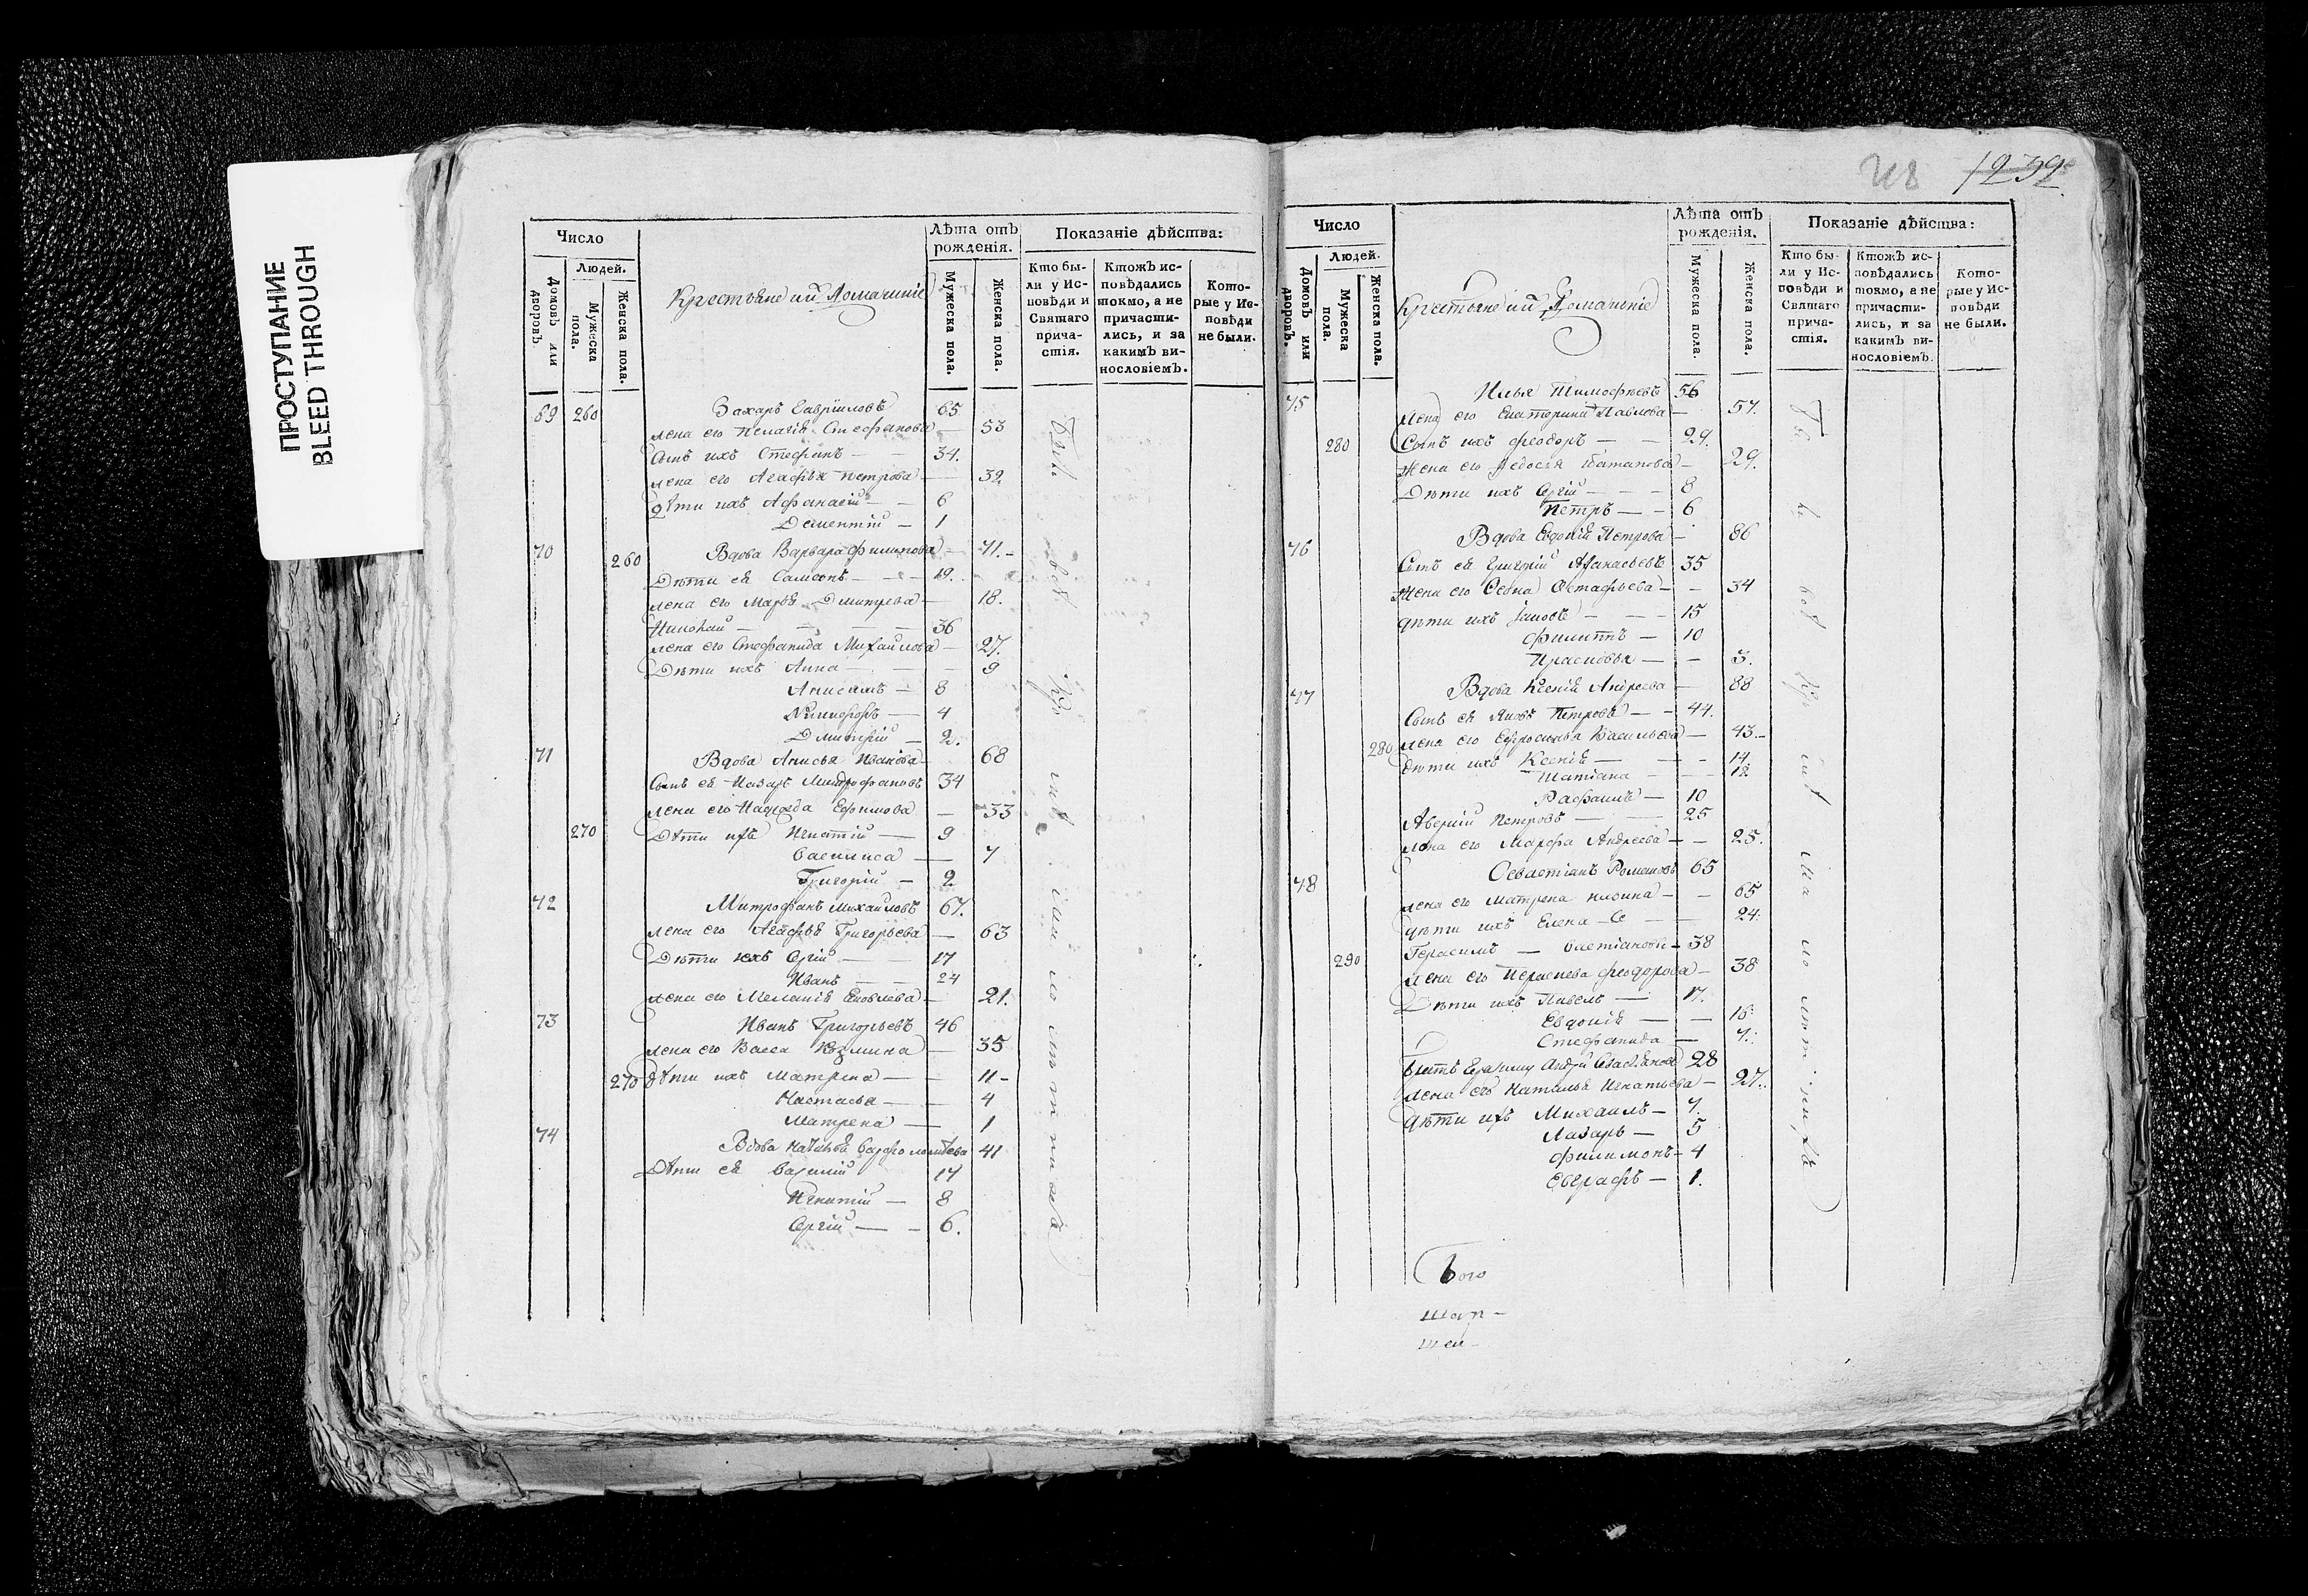 ПРОСТУПАНИЕ
BLEED THROUGH
Число
Людей.
Домовъ или дворовъ.
Мужеска пола.
Женска пола.
Крестьяне ий Домашніе
Лѣта отъ рожденія.
Мужеска пола.
Женска пола.
Показаніе дѣйства:
Кто были у Исповѣди и Святаго причастія.
Ктожъ исповѣдались токмо, а не причастились, и за какимъ винословіемъ.
Которые у Исповѣди не были.
69 260 Захаръ Гавриловъ 65
жена его Пелагія Стефанова — 53
Сынъ ихъ Стефанъ — 34.
жена его Агафья Петрова — 32
дѣти ихъ Афанасій — 6
Дементій — 1
70 260 Вдова Варвара Филипова — 71.
Дѣти ея Самсонъ — 19.
жена его Марѳа Дмитрева — 18.
Николай — 36
жена его Стефанида Михайлова — 27.
Дѣти ихъ Анна — 9
Анисимъ — 8
Никифоръ — 4
Дмитрій — 2.
71 Вдова Анисья Иванова — 68
Сынъ ея Назаръ Митрофановъ 34
жена его Надежда Ефимова — 33
270 Дѣти ихъ Игнатій — 9
Василиса — 7
Григорій — 2
72 Митрофанъ Михайловъ 67.
жена его Агафья Григорьева — 63
Дѣти ихъ Сергій — 17
Иванъ — 24
жена его Меланія Яковлева — 21.
73 Иванъ Григорьевъ 46
жена его Васса Козмина — 35
270 дѣти ихъ Матрена — 11 -
Настасья — 4
Матрена — 1
74 Вдова Наталья Варфоломѣева 41
Дѣти ея Василій 17
Игнатій — 8
Сергій — 6.
Были всѣ
1232
Число
Людей.
Домовъ или дворовъ.
Мужеска пола.
Женска пола.
Крестьяне ий Домашніе
Лѣта отъ рожденія.
Мужеска пола.
Женска пола.
Показаніе дѣйства:
Кто были у Исповѣди и Святаго причастія.
Ктожъ исповѣдались токмо, а не причастились, и за какимъ винословіемъ.
Которые у Исповѣди не были.
75 Илья Тимофѣевъ 56
Жена его Екатерина Павлова — 57.
280 Сынъ ихъ Феодоръ — 29.
Жена его Федосья — 29.
Дѣти ихъ Сергій — 8
Петръ — 6
76 Вдова Евдокія Петрова — 86
Сынъ ея Григорій Афанасьевъ 35
Жена его Остафьева — 34
дѣти ихъ Іаковъ — 15
Филиппъ — 10
Прасковья — 3.
77 Вдова Ксенія Андреева — 88
Сынъ ея Яковъ Петровъ — 44.
280 жена его Ефросинья Васильева — 43.
дѣти ихъ Ксенія — 14
Татіана — 12
Рафаилъ — 10
Аверкій Петровъ — 25
жена его Марфа Андреева — 25.
78 Севастіанъ Романовъ 65
жена его Матрена — 65
дѣти ихъ Елена — 24.
290 Герасимъ — 38
жена его Параскева Феодорова — 38
Дѣти ихъ Павелъ — 17.
Евдокія — 15
Стефанида — 7.
Братъ 28
жена его Наталья Игнатьева — 27.
дѣти ихъ Михаилъ — 7.
Лазарь — 5
Филимонъ — 4
Евграфъ — 1.